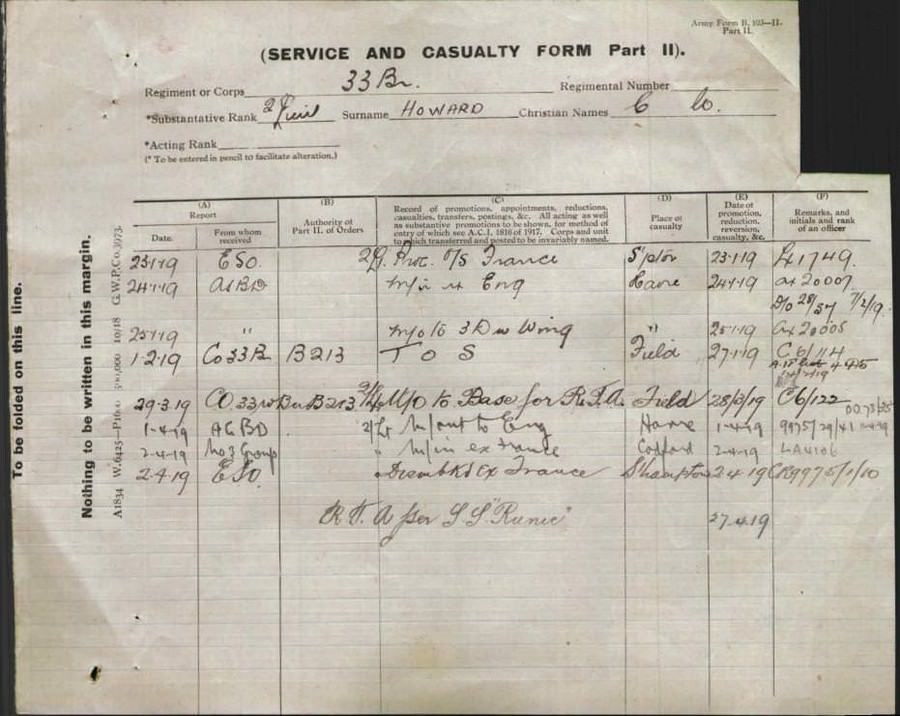 Army Form B. 103—II.
Part II.
(SERVICE AND CASUALTY FORM Part II).
Regiment or Corps 33 Bn. Regimental Number
*Substantative Rank 2/Lieut Surname HOWARD Christian Names C Co.
*Acting Rank
(* To be entered in pencil to facilitate alteration.)
To be folded on this line.
Nothing to be written in this margin.
A1834 W.6425—P1600 500,000 10/18 G.W.P.Co.3973.
(A) Report
Date. From whom received
(B) Authority of Part II. of Orders
(C) Record of promotions, appointments, reductions, casualties, transfers, postings, &c. All acting as well as substantive promotions to be shown, for method of entry of which see A.C.I. 1816 of 1917. Corps and unit to which transferred and posted to be invariably named.
(D) Place of casualty
(E) Date of promotion, reduction, reversion, casualty, &c.
(F) Remarks, and initials and rank of an officer
23-1-19 ESO. 2/Lt. Proc. O/S France S'pton 23-1-19 L41749.
24-1-19 AGBD M/in ex Eng Havre 24-1-19 ax 20007
D/o 28/37 7/2/19.
25-1-19 " M/o to 3 Div Wing " 25-1-19 ax 20008
1-2-19 Co 33 B B213 T O S Field 27-1-19 C6/114
29.3.19 CO 33 B213 2/Lt M/o to Base for R.T.A. Field 28/3/19 C6/122
1-4-19 AGBD 2/Lt M/out to Eng Havre 1-4-19 9975/29/41
2-4-19 No 3 Group " M/in ex France Codford 2-4-19 LA4106
2-4-19 ESO. " Disembkd Ex France S'hampton 2-4-19 9975/1/10
R. T. A per S.S. "Runic" 27.4.19